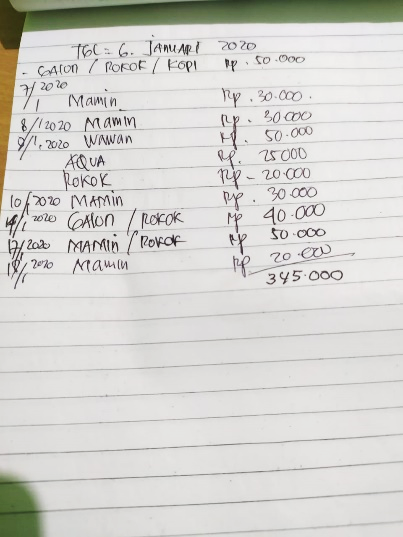 TGL = 6. JANUARI 2020
- GALON / ROKOK / KOPI Rp. 50.000
7/1 2020 Mamin Rp. 30.000.
8/1 2020 Mamin Rp. 30.000
9/1, 2020 WAWAN Rp. 50.000
AQUA Rp. 25000
ROKOK Rp - 20.000
10/1 2020 MAMIN Rp. 30.000
/1 2020 GALON / ROKOK Rp 40.000
/1 2020 MAMIN / ROKOK Rp 50.000
/1 2020 Mamin Rp 20.000
345.000